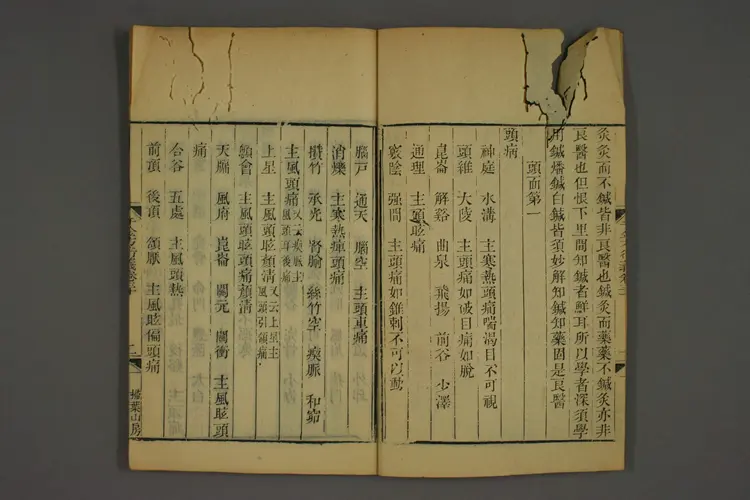 灸灸而不鍼皆非良醫也鍼灸而藥藥不鍼灸亦非
良醫也但恨下里間知鍼者鮮耳所以學者深須學
用鍼燔鍼白鍼皆須妙解知鍼知藥固是良醫
頭面第一
頭病
神庭 水溝 主寒熱頭痛喘渴目不可視
頭維 大陵 主頭痛如破目痛如脫
崑崙 解谿 曲泉 飛揚 前谷 少澤
通理 主頭眩痛
竅陰 强間 主頭痛如錐刺不可以動
腦戸 通天 腦空 主頭重痛
消爍 主寒熱痺頭痛
攢竹 承光 腎腧 絲竹空 瘈脈 和窌
主風頭痛又云瘈脈主風頭耳後痛
上星 主風頭眩顔清又云上星主風頭引頷痛
顖會 主風頭眩頭痛顔清
天牖 風府 崑崙 關元 關衝 主風眩頭
痛
合谷 五處 主風頭熱
前頂 後頂 頷厭 主風眩偏頭痛
掃葉山房